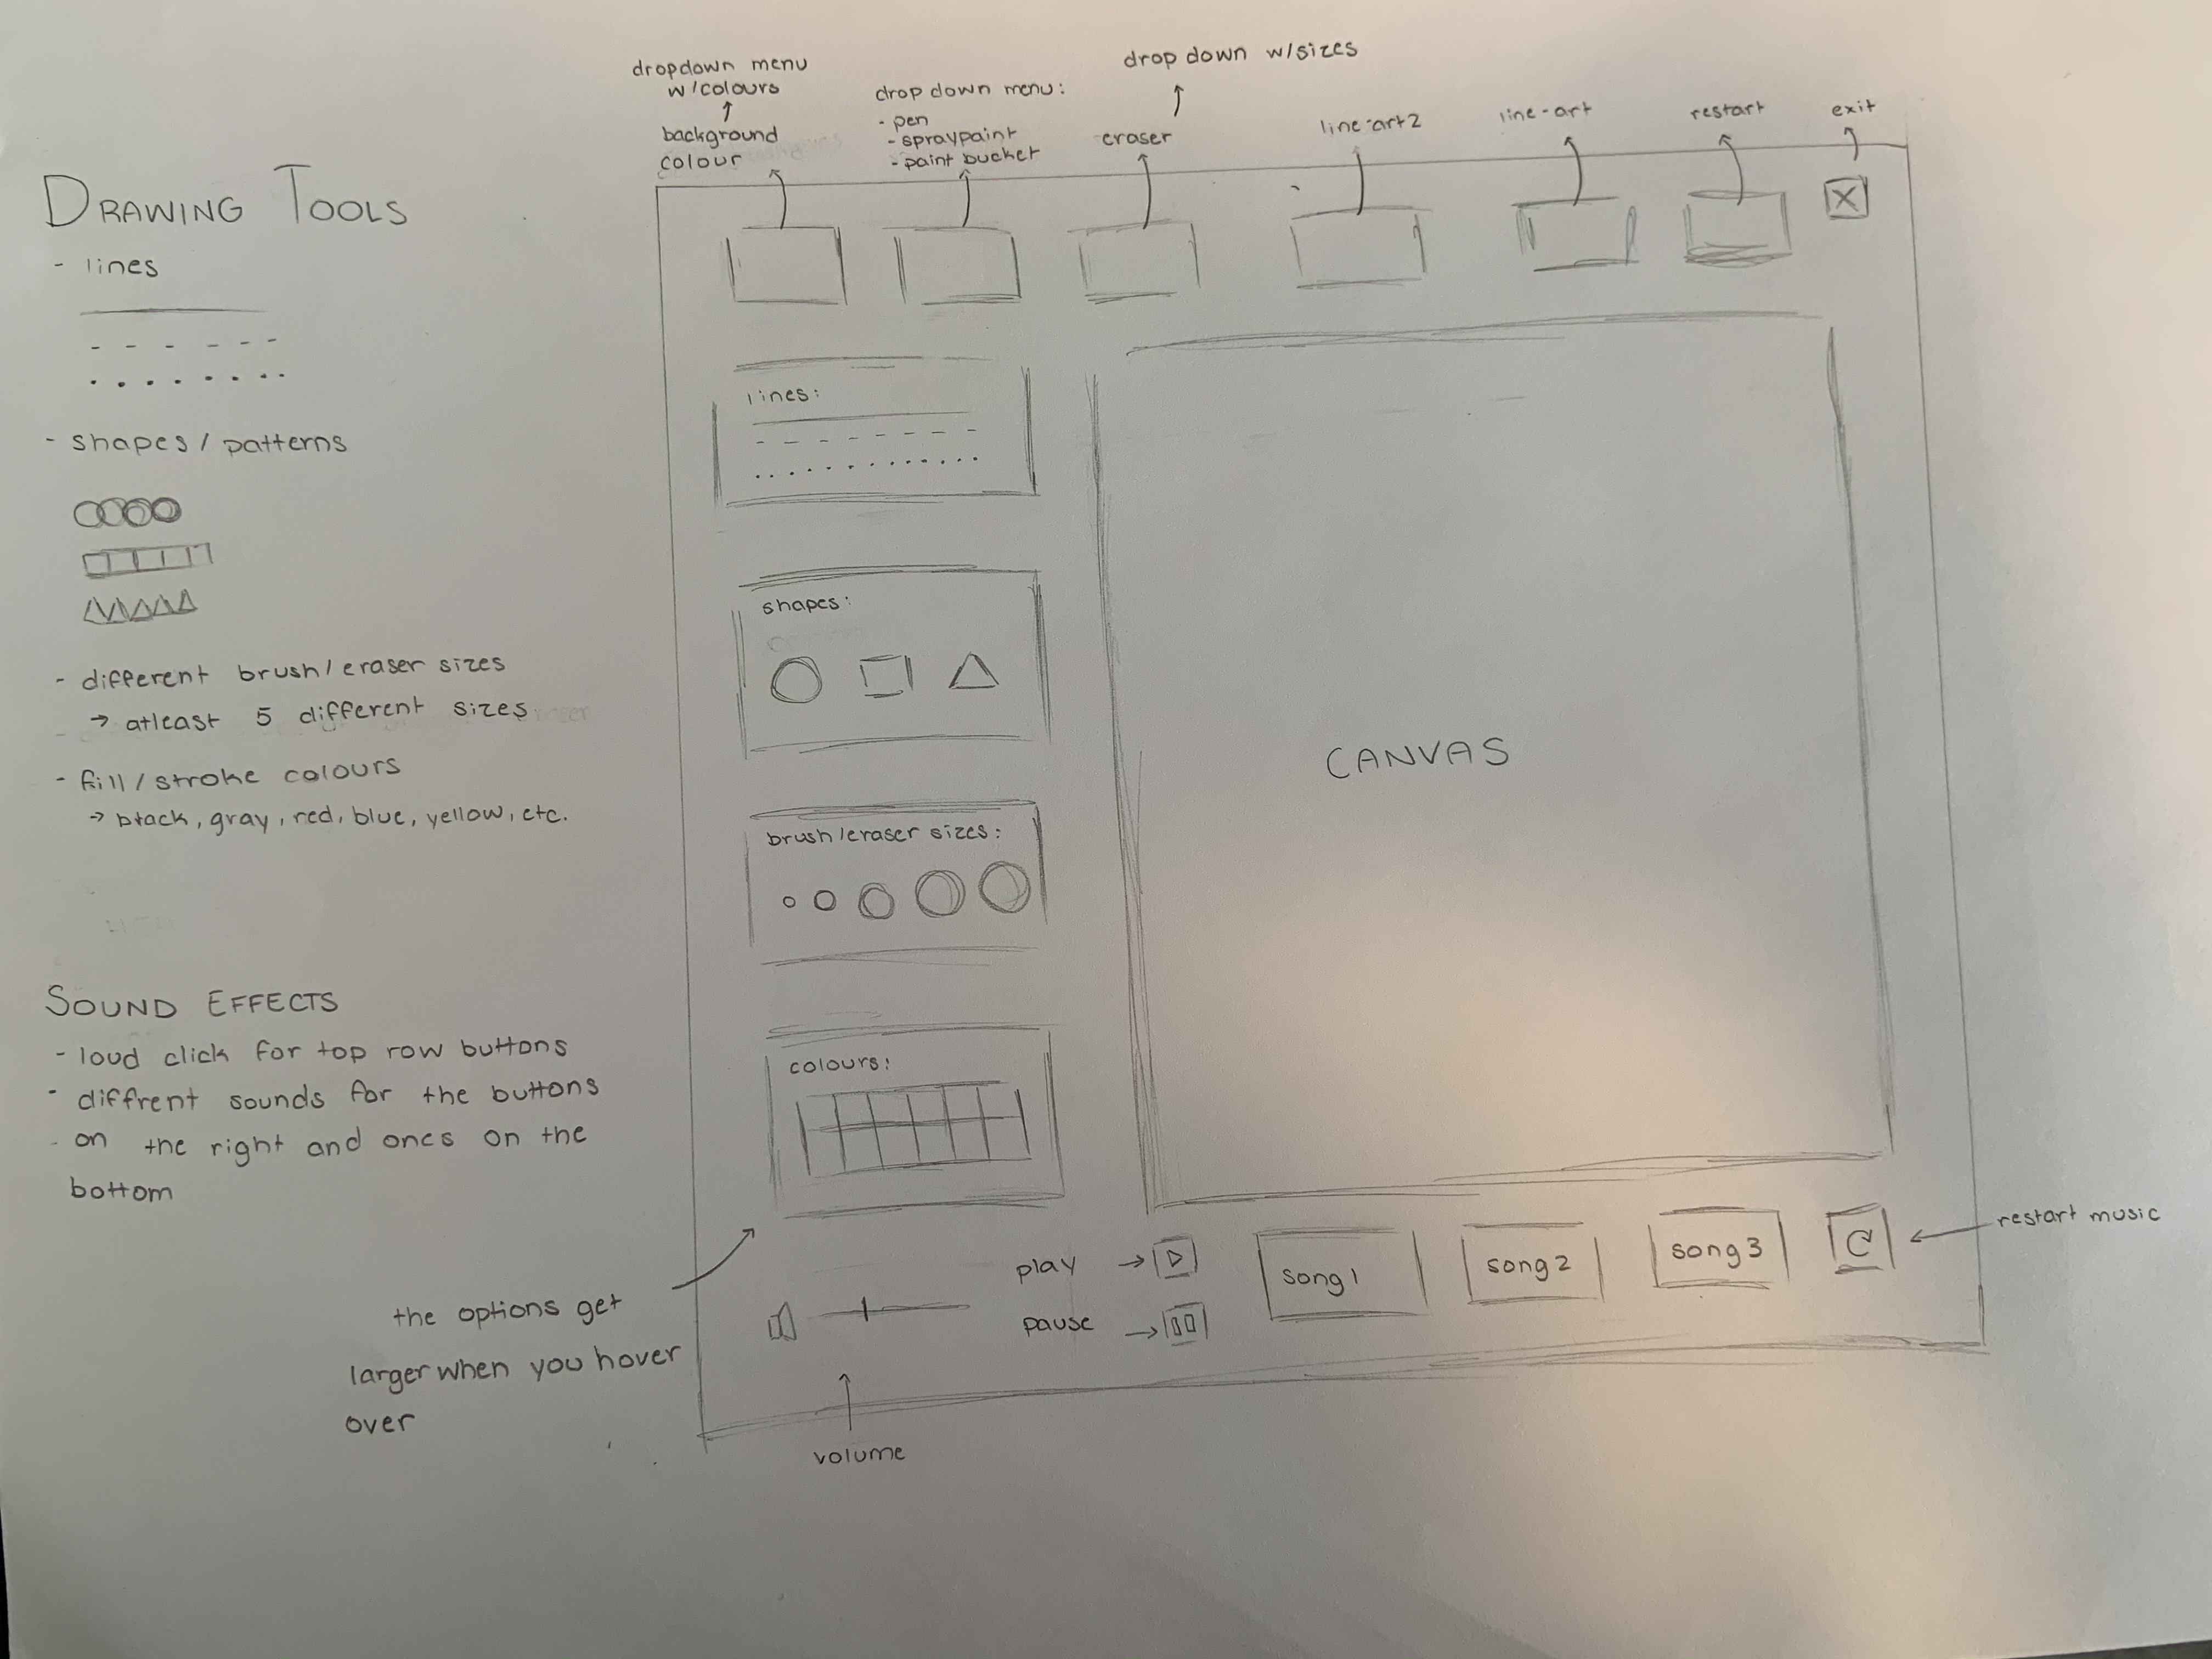 DRAWING TOOLS
- lines
- shapes / patterns
- different brush/eraser sizes
→ atleast 5 different sizes
- fill / stroke colours
→ black, gray, red, blue, yellow, etc.
SOUND EFFECTS
- loud click for top row buttons
- diffrent sounds for the buttons
- on the right and ones on the
bottom
the options get
larger when you hover
over
dropdown menu
w/colours
background
colour
drop down menu:
- pen
- spraypaint
- paint bucket
drop down w/sizes
eraser
line-art2
line-art
restart
exit
X
lines:
shapes:
brush/eraser sizes:
colours:
CANVAS
play →
pause →
song 1
song 2
song 3
restart music
volume